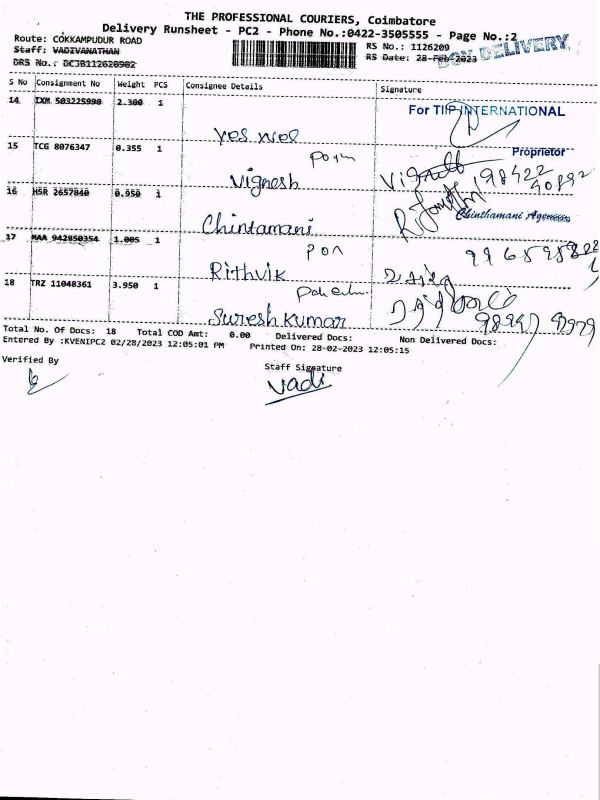 THE PROFESSIONAL COURIERS, Coimbatore
Delivery Runsheet - PC2 - Phone No.:0422-3505555 - Page No.:2
Route: COKKAMPUDUR ROAD
RS No.: 1126209
BOX DELIVERY
Staff: VADIVANATHAN
RS Date: 28-Feb-2023
DRS No.: DCJB112620902
S No Consignment No Weight PCS Consignee Details Signature
14 IXM 503225990 2.300 1
For TIIP INTERNATIONAL
Yes Wes
Proprietor
15 TCG 8076347 0.355 1
Vignesh
16 HSR 2657840 0.950 1
Chinthamani Agencies
Chintamani
17 MAA 942850354 1.005 1
Rithvik
18 TRZ 11048361 3.950 1
Suresh Kumar
Total No. Of Docs: 18 Total COD Amt: 0.00 Delivered Docs: Non Delivered Docs:
Entered By :KVENIPC2 02/28/2023 12:05:01 PM Printed On: 28-02-2023 12:05:15
Verified By
Staff Signature
Vadi